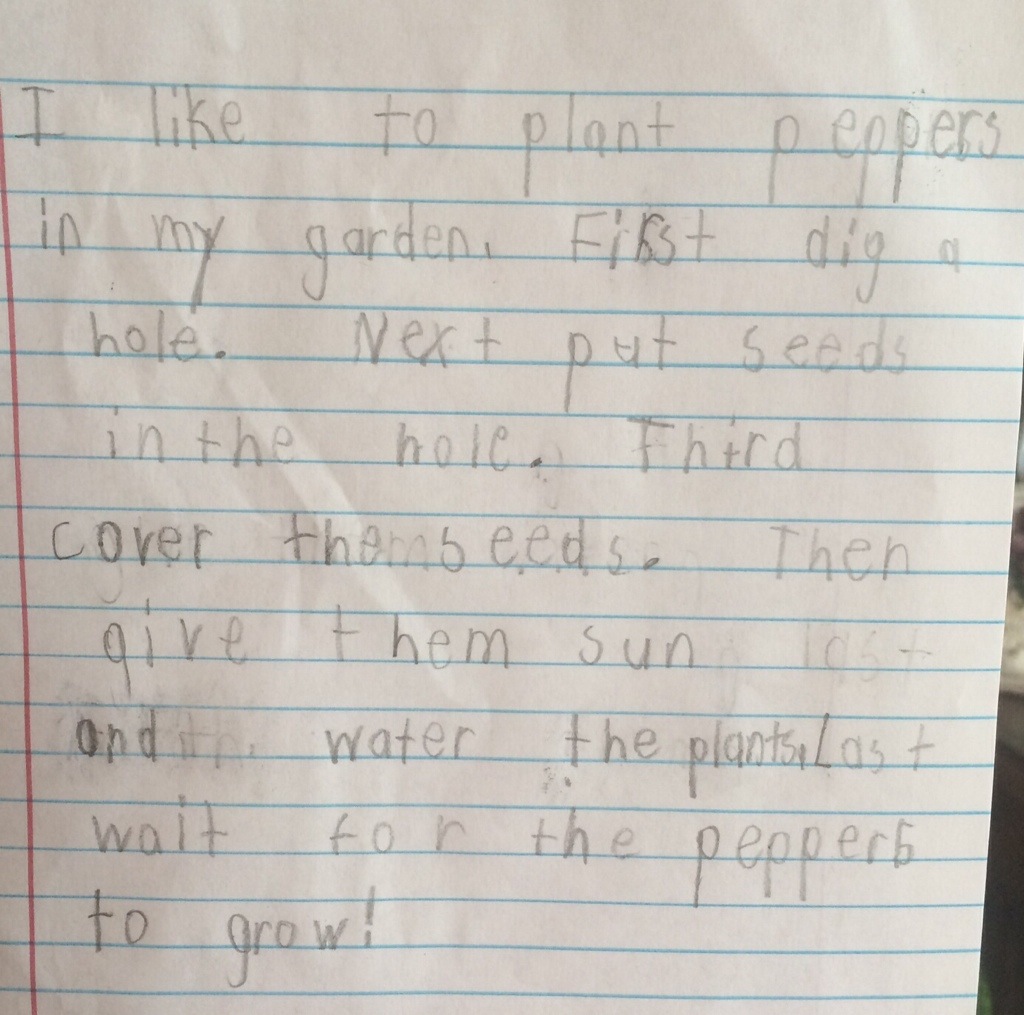 I like to plant peppers
in my garden. First dig a
hole. Next put seeds
in the hole. Third
cover the seeds. Then
give them sun last
and water the plants. Last
wait for the peppers
to grow!